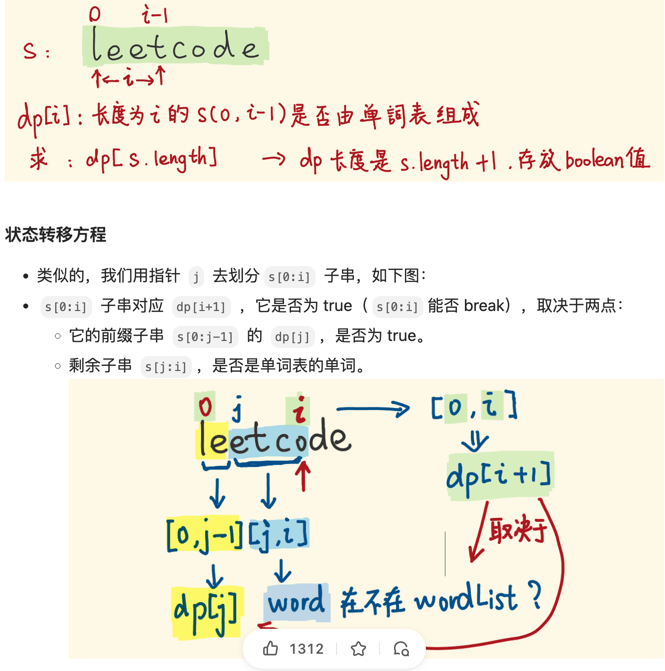 0 i-1
s: leetcode
←i→
dp[i]:长度为i的s(0,i-1)是否由单词表组成
求:dp[s.length] → dp长度是s.length+1.存放boolean值
状态转移方程
• 类似的，我们用指针 j 去划分 s[0:i] 子串，如下图：
• s[0:i] 子串对应 dp[i+1] ，它是否为 true（ s[0:i] 能否 break），取决于两点：
◦ 它的前缀子串 s[0:j-1] 的 dp[j] ，是否为 true。
◦ 剩余子串 s[j:i] ，是否是单词表的单词。
0 j i → [0,i]
leetcode
dp[i+1]
取决于
[0,j-1] [j,i]
dp[j] word 在不在 wordList?
1312